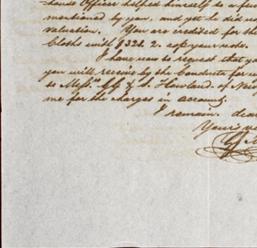 hands Officer helped himself to a few
mentioned by you, and yet he did no
valuation. You are credited for the
Cloths with $321. 2. as pr your note.
I have now to request that yo
you will receive by the Conducta for
to Messrs. G. G. & S. Howland, of New
me for the charges in account.
I remain, dear
Your